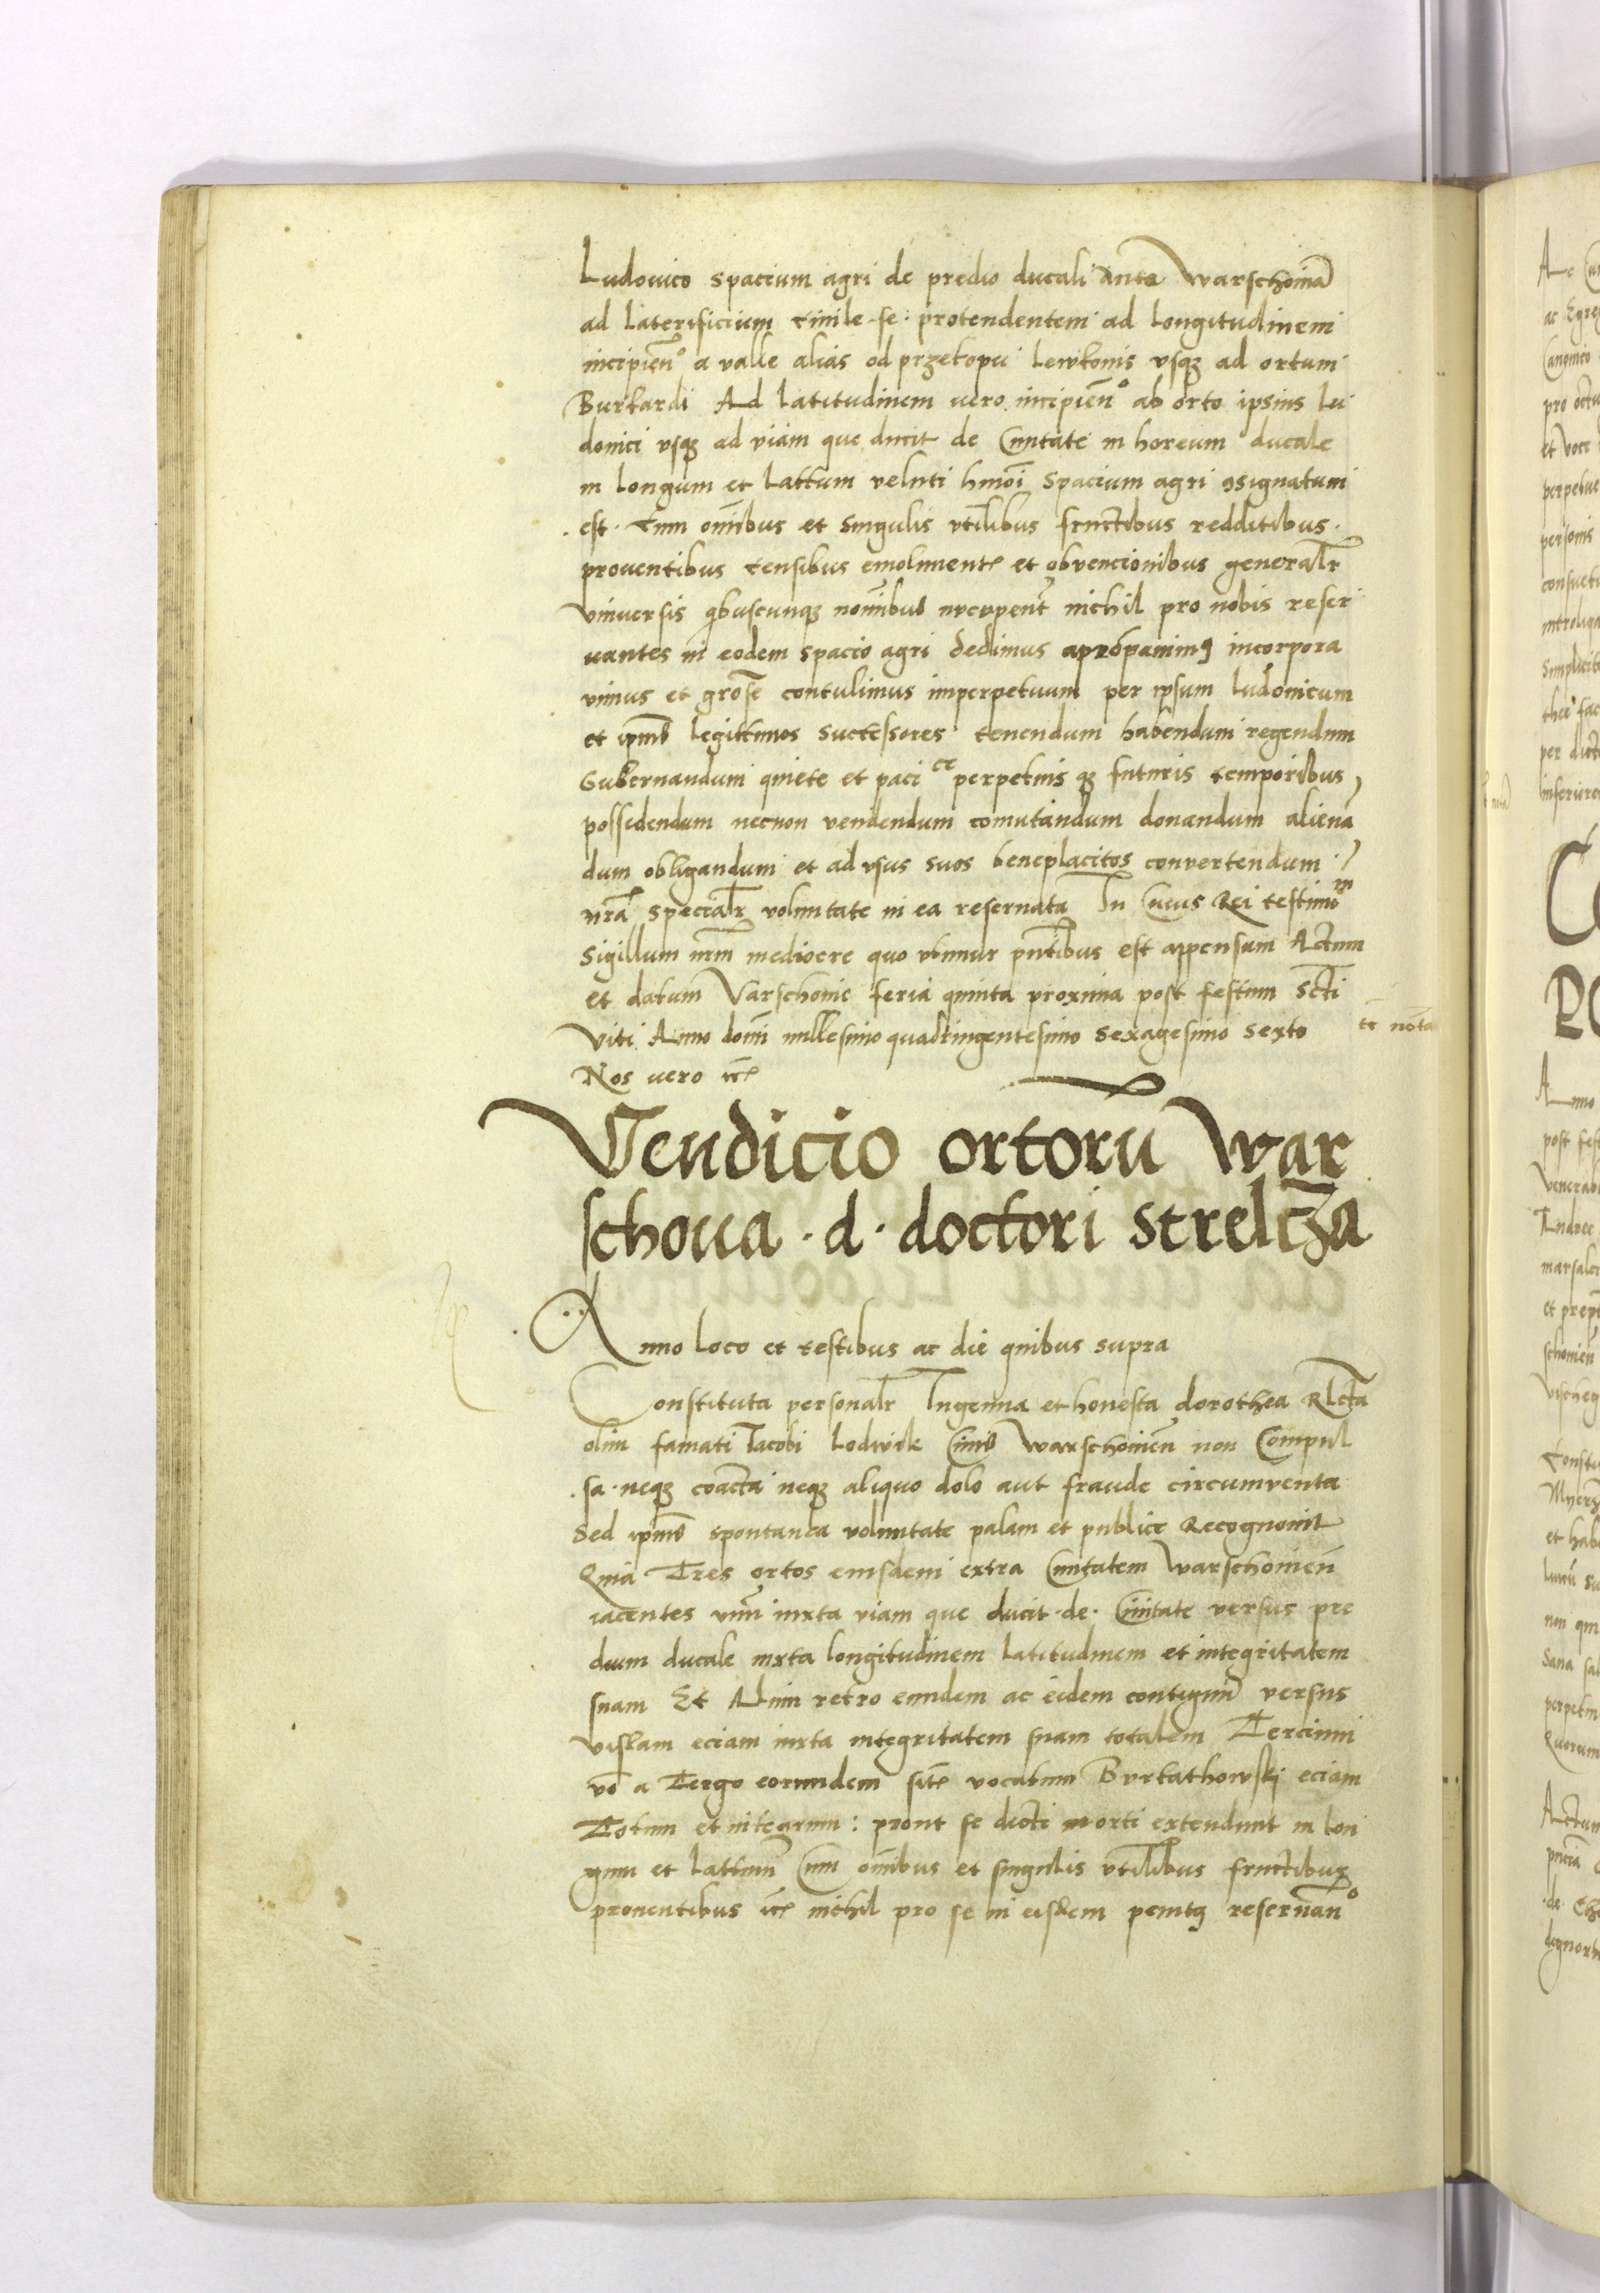 Ludovico spacium agri de predio ducali Ante Warschoviā
ad laterificium civile se protendentem ad longitudinem
incipień° a valle alias od przekopu lewkonis vsqꝫ ad ortum
Burkardi Ad latitudinem uero incipień° ab orto ipsius lu
douici vsqꝫ ad viam que ducit de Ciuitate in horeum ducale
in longum et lattum veluti hmōi spacium agri ꝯsignatum
est. Cum om̄ibus et singulis vtilibus fructibus redditibus
prouentibus censibus emolument̄ et obvencionibus generalr̄
vniuersis qͥbuscunqꝫ nomībus nichil pro nobis reser
uantes in eodem spacio agri dedimus incorpora
uimus et contulimus imperpetuum per ipsum ludouicum
et ip̄ius legittimos successores tenendum habendum regendum
Gubernandum quiete et paci ce perpetuis qꝫ futuris temporibus
possidendum necnon vendendum comutandum donandum aliena
dum obligandum et ad vsus suos beneplacitos convertendum
nrā specialr̄ voluntate in ea reseruata In Cuius Rei testimō m
Sigillum nrm̄ mediocre quo vtimur pn̄tibus est appensum Actum
et datum Varschovie feria quinta proxima post festum Scti
Viti Anno domī millesimo quadringentesimo sexagesimo sexto
Nos uero ec̄
Vendicio ortorū War
schoua · d · doctori Strelcza
Anno loco et testibus ac die quibus supra
Constituta personalr̄ Ingenua et honesta dorothea Rlcta
olim famati Iacobi Lodwik Ciuis Warschouień non Compul
sa neqꝫ coacta neqꝫ aliquo dolo aut fraude circumventa
Sed ip̄ius spontanea voluntate palam et publice Recognouit
Quia Tres ortos eiusdem extra Ciuitatem Warschouień
iacentes vnū iuxta viam que ducit de Ciuitate versus pre
dium ducale iuxta longitudinem latitudinem et integritatem
suam Et Aliū retro eundem ac eidem contiguū versus
vislam eciam iuxta integritatem suam totalem Tercium
vō a Tergo eorundem sitū vocatum Burkathowski eciam
Totum et integrum: prout se dicti orti extendunt in lon
gum et lattum Cum om̄ibus et singulis vtilibus fructibus
prouentibus ec̄ nichil pro se in eisdem penitꝰ reseruan̄°